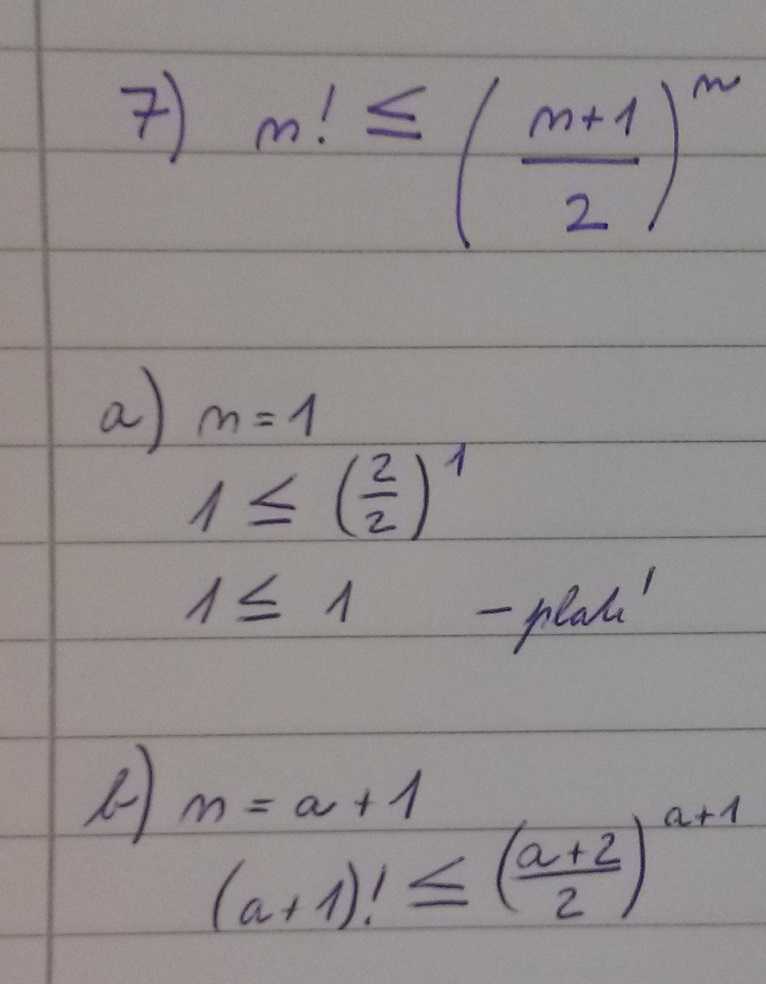 7) n! ≤ ((n+1)/2)^n
a) n = 1
1 ≤ (2/2)^1
1 ≤ 1 - platí
b) n = a + 1
(a+1)! ≤ ((a+2)/2)^(a+1)